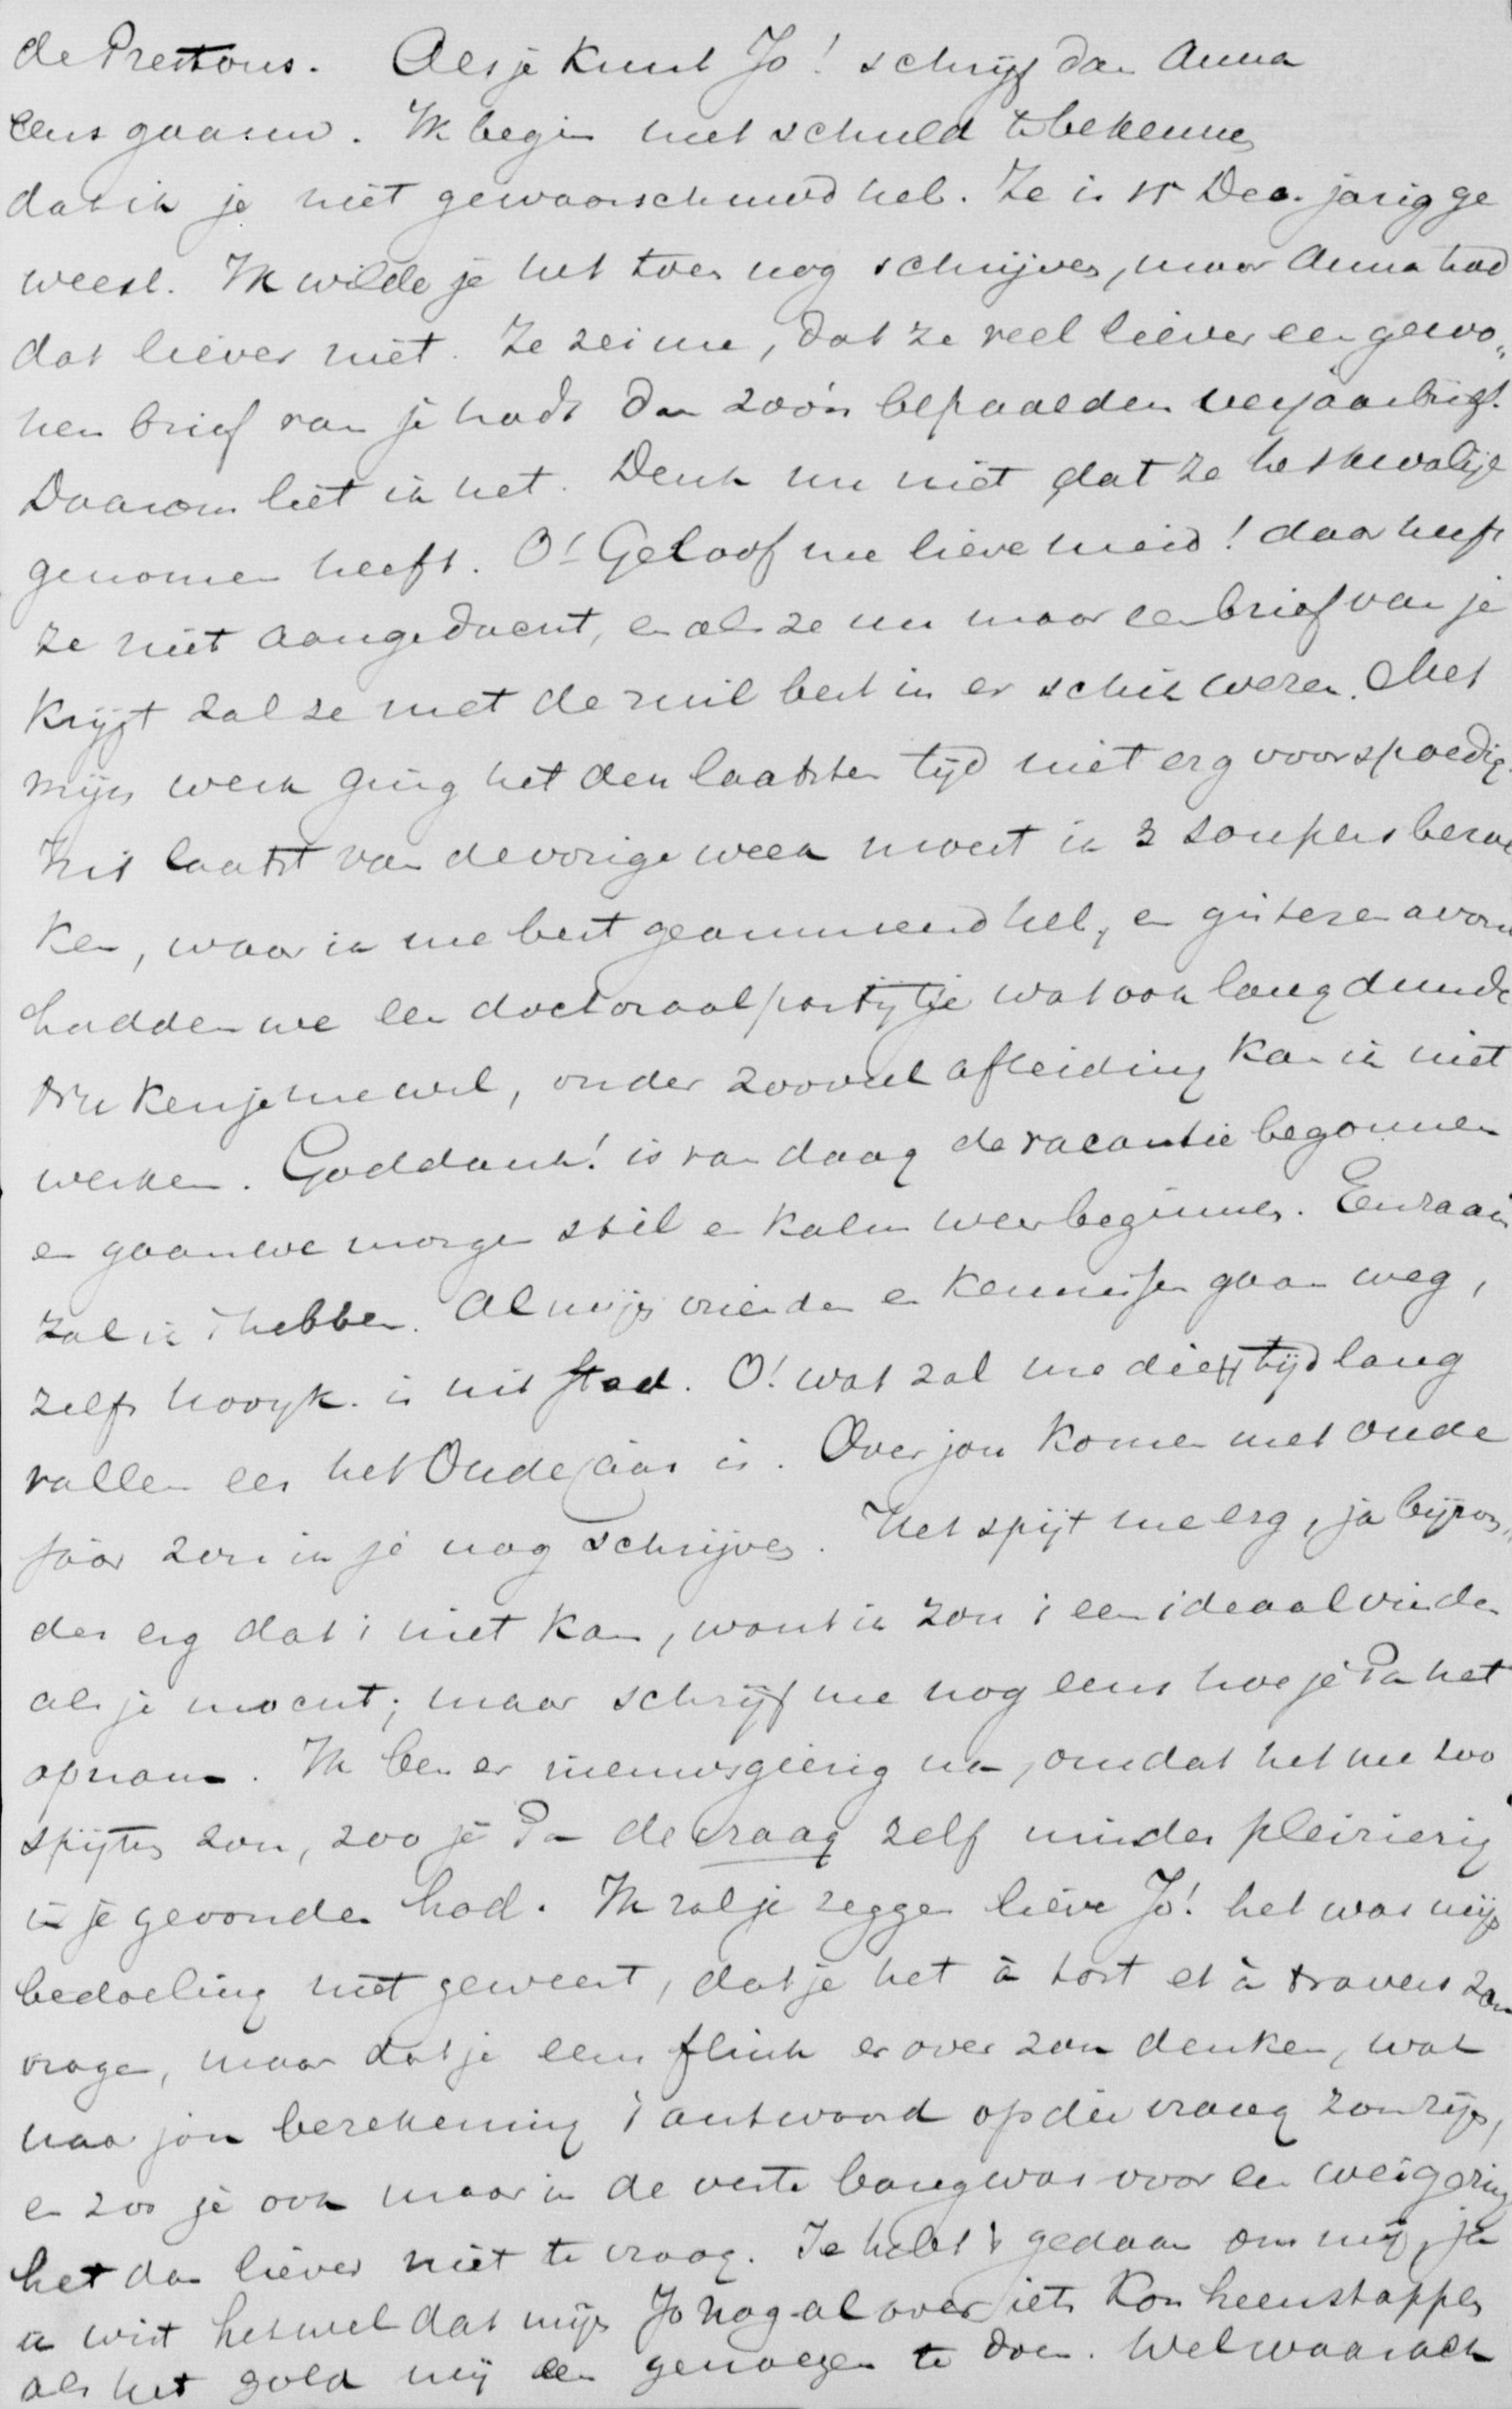 de Prestons. Als je kunt Jo! schrijf dan Anna
eens gaauw. Ik begin met schuld te bekennen
dat ik je niet gewaarschuwd heb. Ze is 15 Dec. jarig ge
weest. Ik wilde je het toen nog schrijven, maar Anna had
dat liever niet. Ze zei me, dat ze veel liever een gewo„
nen brief van je hadt dan zoo'n bepaalden verjaarbrief.
Daarom liet ik het. Denk nu niet dat ze het kwalijk
genomen heeft. O! Geloof me lieve meid! daar heeft
ze niet aangedacht, en als ze nu maar een brief van je
krijgt zal ze met de ruil best in er schik wezen. Met
mijn werk ging het den laatsten tijd niet erg voorspoedig.
Het laatst van de vorige week moest ik 3 soupers bezoe
ken, waar ik me best geamuseerd heb, en gisteren avond
hadden we een doctoraalpartijtje wat ook lang duurde
Nu ken je me wel, onder zooveel afleiding kan ik niet
werken. Goddank! is van daag de vacantie begonnen
en gaan we morgen stil en kalm weer beginnen. Eenzaam
zal ik 't hebben. Al mijn vrienden en kennissen gaan weg,
zelfs is uit stad. O! wat zal me die tijd lang
vallen eer het Oudejaar is. Over jou komen met oude
jaar zou ik je nog schrijven. Het spijt me erg, ja bijzon„
der erg dat 't niet kan, want ik zou 't een ideaal vinden
als je mocht; maar schrijf me nog eens hoe je Pa het
opnam. Ik ben er nieuwsgierig na, omdat het me zoo
spijten zou, zoo je Pa de vraag zelf minder pleizierig
in je gevonden had. Ik zal je zeggen lieve Jo! het was mijn
bedoeling niet geweest, dat je het à tort et à travers zou
vragen, maar dat je eens flink er over zou denken, wat
naar jou berekening 't antwoord op die vraag zou zijn,
en zoo je ook maar in de verte bang was voor een weigering
het dan liever niet te vraag. Je hebt 't gedaan om mij, ja
ik wist het wel dat mijn Jo nog al over iets kon heenstappen
als het gold mij een genoegen te doen. Wel waarach